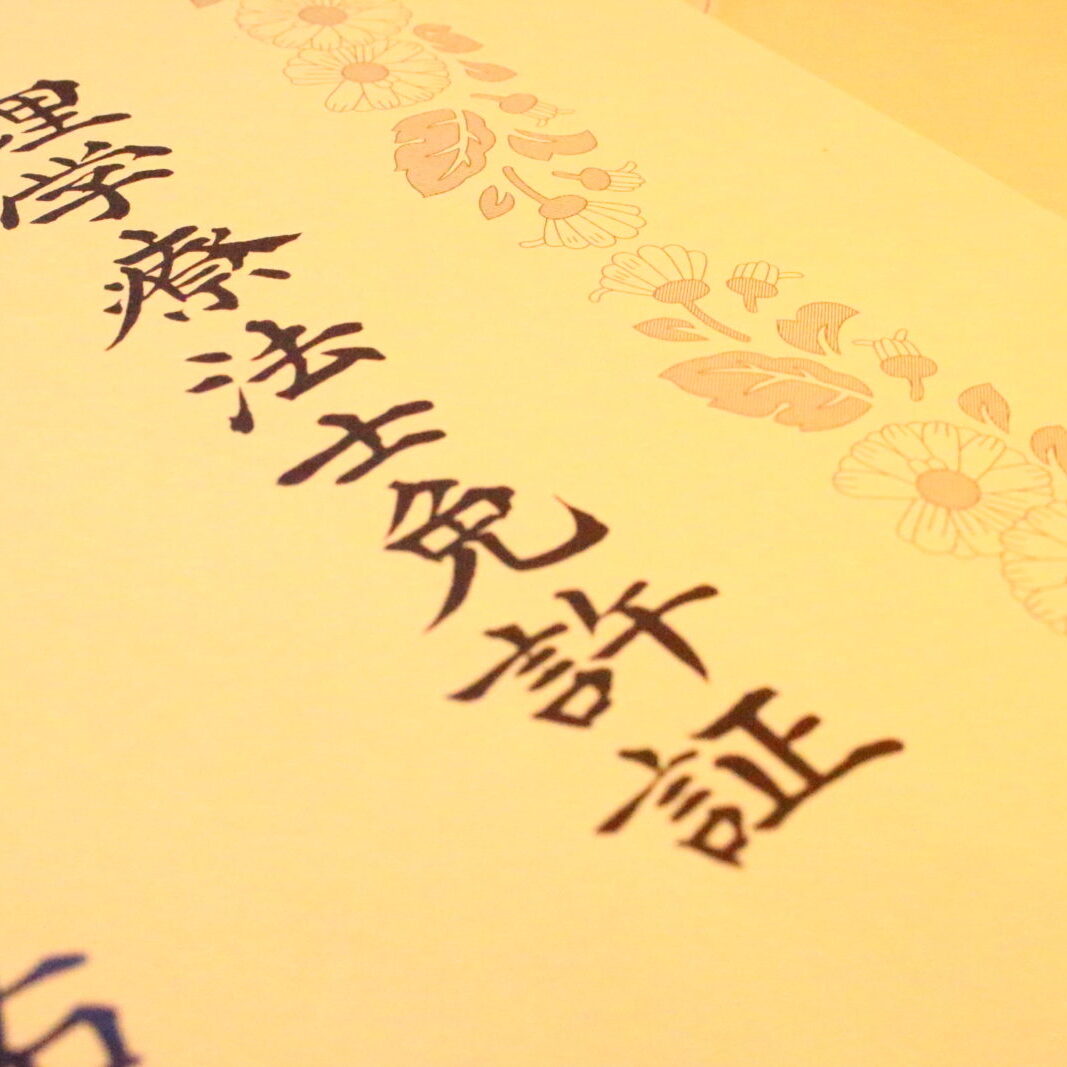 理学療法士免許証